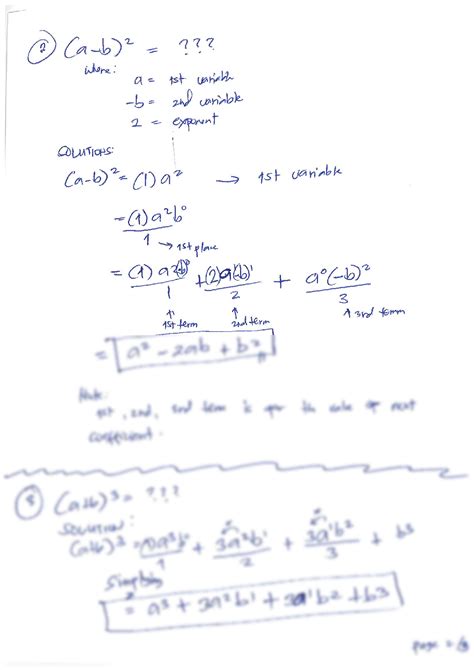 ② (a-b)² = ???
where:
a = 1st variable
-b = 2nd variable
2 = exponent
SOLUTIONS:
(a-b)² = (1) a² → 1st variable
= (1) a²b⁰
1 → 1st place
= (1) a²(-b)⁰ + (2)a(-b)¹ + a⁰(-b)²
1 2 3
↑ ↑ ↑ 3rd term
1st term 2nd term
= a² - 2ab + b²
Note:
1st, 2nd, 3rd term is for the next
coefficient.
③ (a+b)³ = ???
SOLUTION:
(a+b)³ = a³b⁰ + 3a²b¹ + 3a¹b² + b³
1 2 3
= a³ + 3a²b¹ + 3a¹b² + b3
page